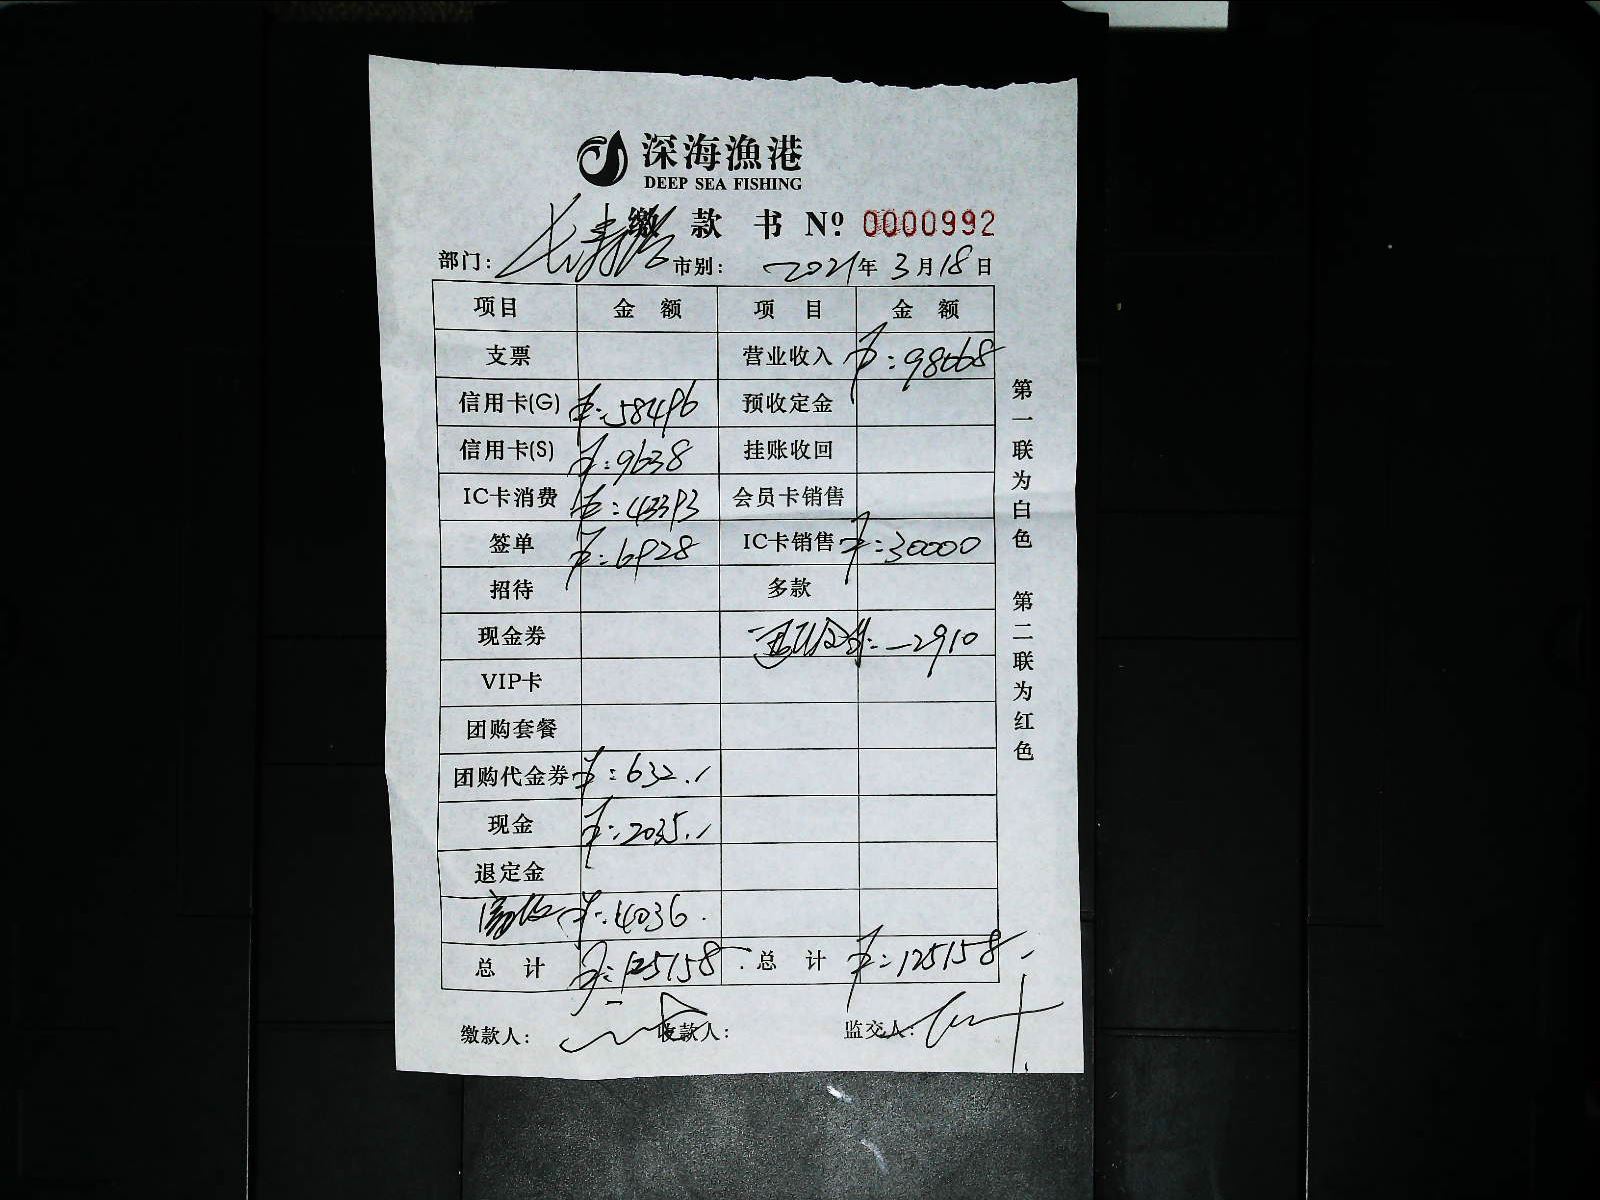 深海漁港
DEEP SEA FISHING
缴款书 Nº. 0000992
部门: 长寿路 市别: 2021年3月18日
项目 金额 项目 金额
支票 营业收入 ¥:98068
信用卡(G) ¥:58496 预收定金
信用卡(S) ¥:9638 挂账收回
IC卡消费 ¥:43393 会员卡销售
签单 ¥:6928 IC卡销售 ¥:30000
招待 多款
现金券 :-2910
VIP卡
团购套餐
团购代金券 ¥:632.-
现金 ¥:2035.-
退定金
¥:4036.
总计 ¥:125158 总计 ¥:125158.-
缴款人: 收款人: 监交人:
第一联为白色 第二联为红色